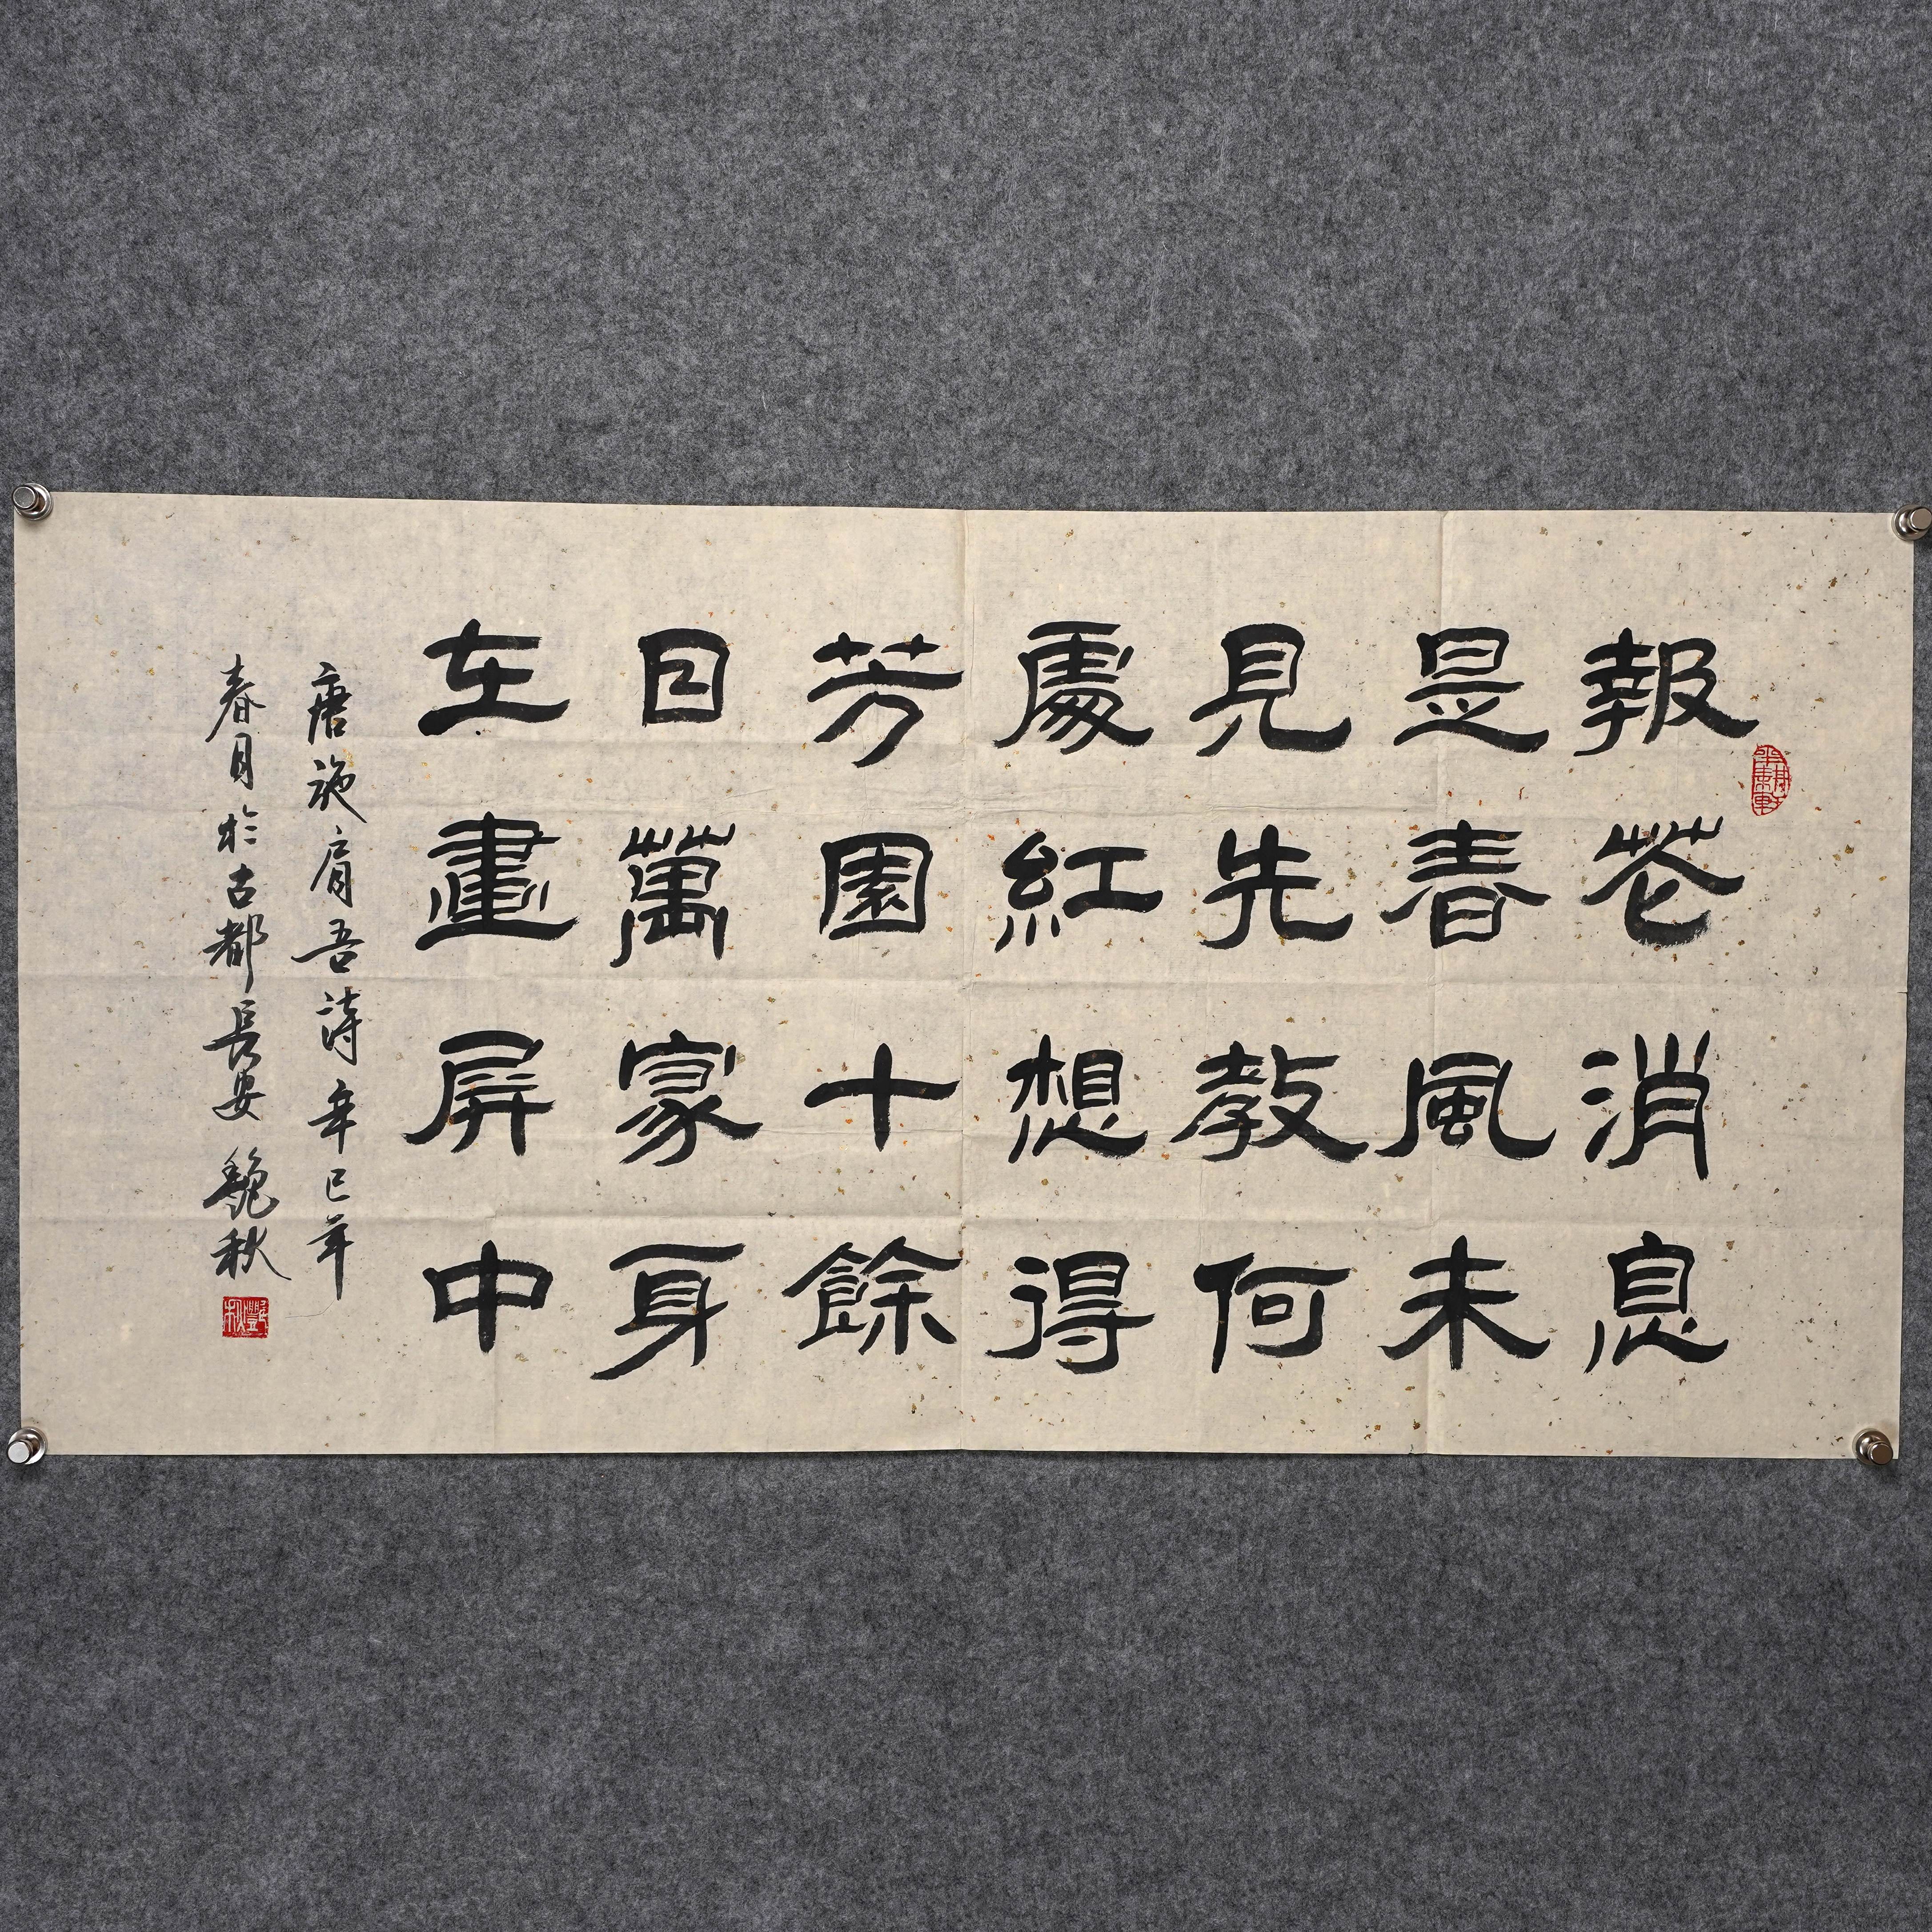 報花消息
是春風未
見先教何
處紅想得
芳園十餘
日萬家身
在畫屏中
唐施肩吾詩辛巳年
春月於古都長安 魏秋